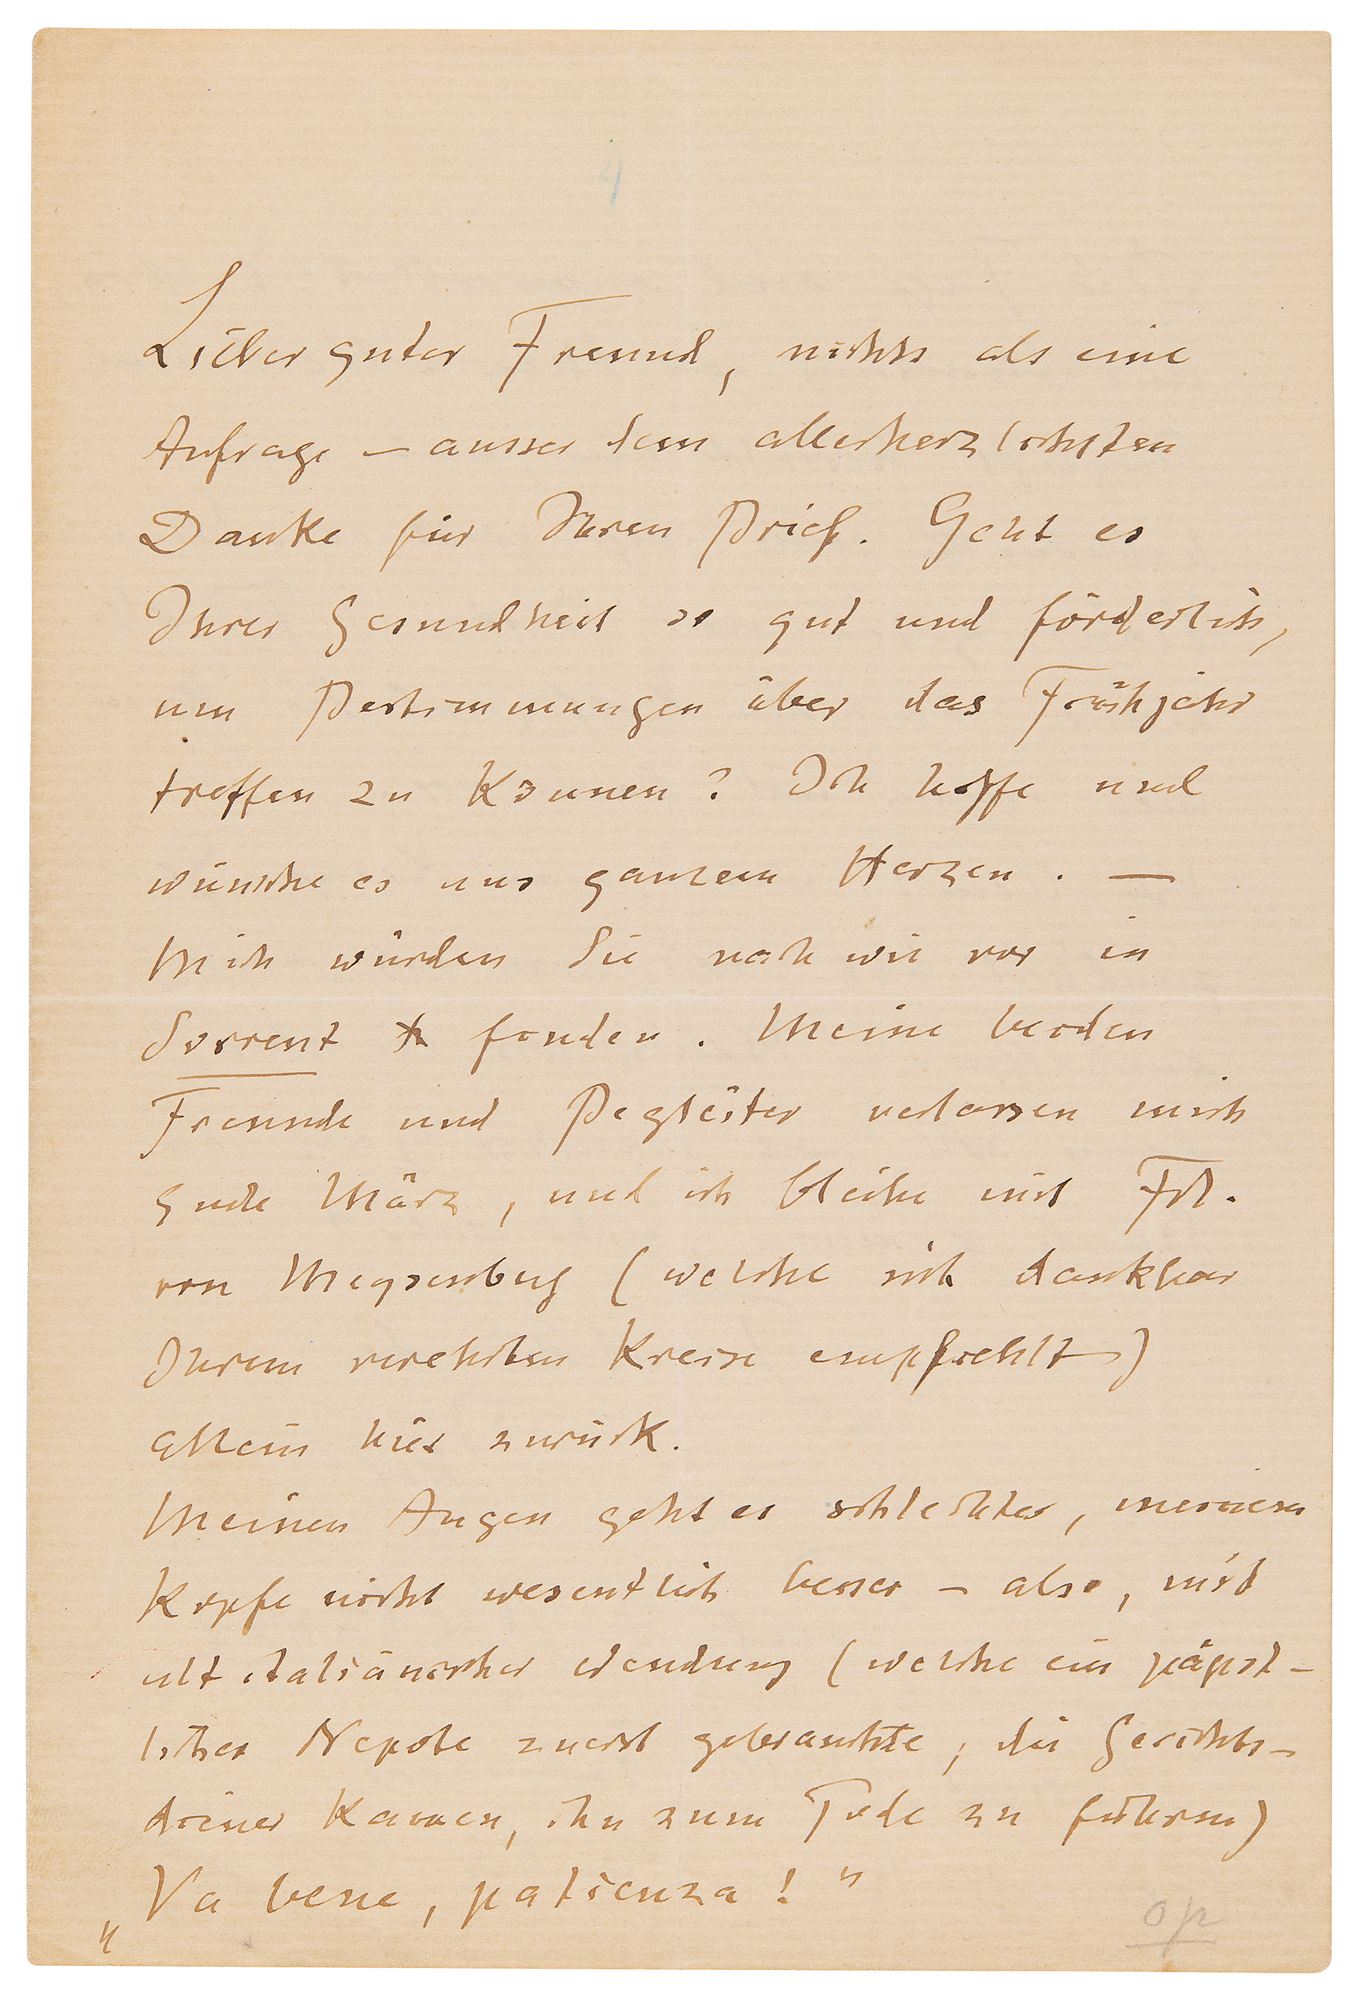 Lieber guter Freund, nichts als eine
Anfrage — ausser dem allerherzlichsten
Danke für Ihren Brief. Geht es
Ihrer Gesundheit so gut und förderlich,
um Bestimmungen über das Frühjahr
treffen zu können? Ich hoffe und
wünsche es aus ganzem Herzen. —
Mich würden Sie nach wie vor in
Sorrent finden. Meine beiden
Freunde und Begleiter verlassen mich
Ende März, und ich bleibe mit Frl.
von Meysenbug (welche sich dankbar
Ihrem verehrten Kreise empfiehlt)
allein hier zurück.
Meinen Augen geht es schlechter, meinem
Kopfe nicht wesentlich besser — also, mit
alt italiänischer Wendung (welche ein päpst-
licher Nepote zuerst gebrauchte, die Gerichts-
diener kamen, ihn zum Tode zu führen)
„Va bene, patienza!"